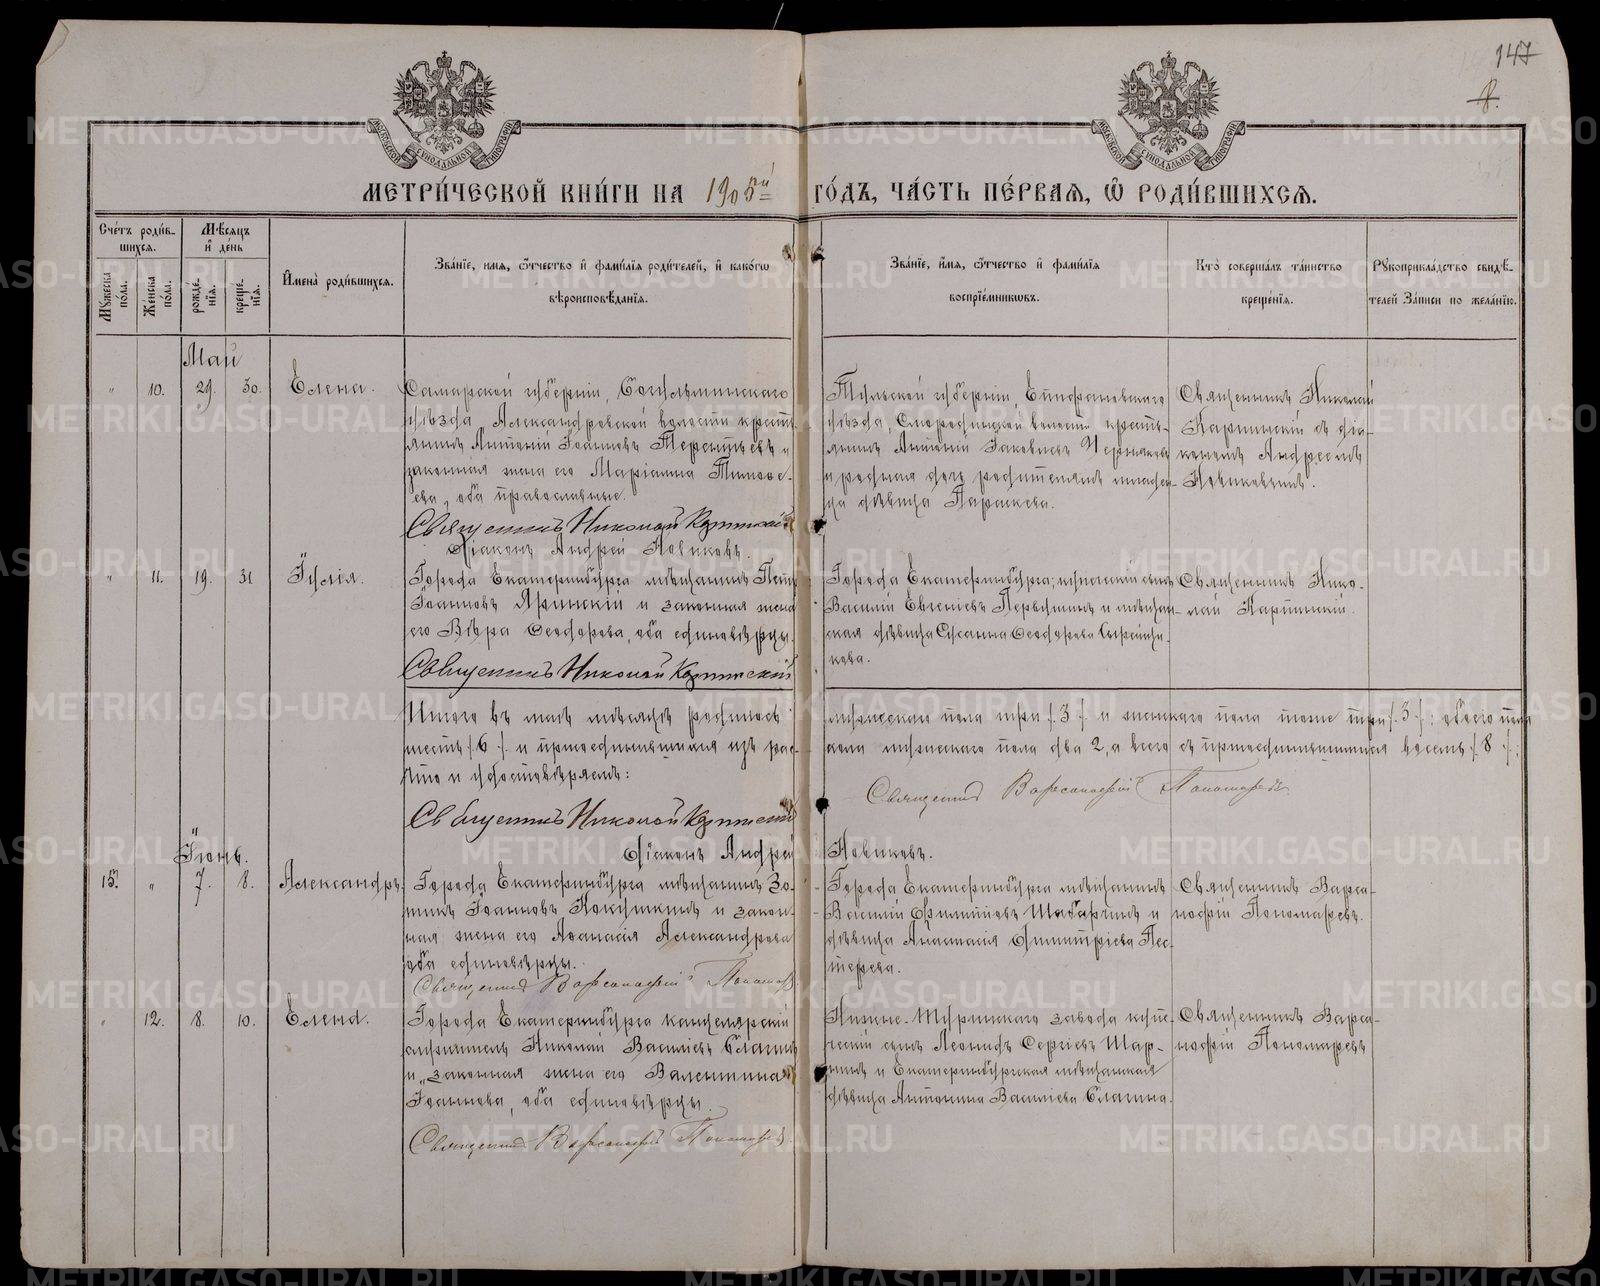 147
8.
МЕТРИ́ЧЕСКОЙ КНИ́ГИ НА 1905й ГО́ДЪ, ЧА́СТЬ ПЕ́РВАЯ, Ѡ҆ РОДИ́ВШИХСЯ.
Сче́тъ роди́вшихся.
Мѣ́сяцъ и҆ де́нь
Му́жеска по́ла.
Же́нска по́ла.
рожде́нїя.
креще́нїя.
И҆мена̀ роди́вшихся.
Зва́нїе, и҆мя, ѻ҆́тчество и҆ фами́лїя роди́телей, и҆ како́гѡ
вѣроисповѣ́данїя.
Зва́нїе, и҆́мя, ѻ҆́тчество и҆ фами́лїя
воспрїе́мниковъ.
Кто̀ соверша́лъ та́инство
креще́нїя.
Рукоприкла́дство свидѣ́-
телей за́писи по жела́нїю.
Май
" 10. 29. 30. Елена.
Самарской губерніи, Бугульминскаго
уѣзда Александровской волости крестья-
нинъ Антоній Іоанновъ Терентьевъ и
законная жена его Маріамна Тимоѳе-
ева, оба православные.
Священникъ Николай Карпинскій
Діаконъ Андрей Новиковъ.
Тульской губерніи, Епифановскаго
уѣзда, волости крестья-
нинъ Антоній Іаковлевъ Черняковъ
и родная дочь родителямъ младен-
ца дѣвица Параскева.
Священникъ Николай
Карпинскій съ діа-
кономъ Андреемъ
Новиковымъ.
" 11. 19. 31 Іулія.
Города Екатеринбурга мѣщанинъ Петръ
Іоанновъ Яринскій и законная жена
его Вѣра Ѳеодорова, оба единовѣрцы.
Священникъ Николай Карпинскій
Города Екатеринбурга; купеческій сынъ
Василій Евгеніевъ Первушинъ и мѣщан-
ская дѣвица Сусанна Ѳеодорова Сырейщи-
кова.
Священникъ Нико-
лай Карпинскій.
Итого въ маѣ мѣсяцѣ родилось
мужескаго пола три /.3./ и женскаго пола тоже три /.3./; обоего пола
шесть /.6./ и присоединившихся изъ рас-
кола мужескаго пола два 2, а всего съ присоединившимися восемь /.8./;
что и удостовѣряемъ:
Священникъ Варсанофій Пономаревъ
Священникъ Николай Карпинскій
Діаконъ Андрей Новиковъ.
Іюнь.
15. " 7. 8. Александръ.
Города Екатеринбурга мѣщанинъ Зо-
тикъ Іоанновъ Кокушкинъ и закон-
ная жена его Аѳанасія Александрова
оба единовѣрцы.
Священникъ Варсанофій Пономарев
Города Екатеринбурга мѣщанинъ
Василій Филипповъ Шабарчинъ и
дѣвица Анастасія Димитріева Пес-
терева.
Священникъ Варса-
нофій Пономаревъ.
" 12. 8. 10. Елена.
Города Екатеринбурга канцелярскій
служитель Николай Василіевъ Благинъ
и законная жена его Валентина
Іоаннова, оба единовѣрцы.
Священникъ Варсанофій Пономаревъ
Нижне-Туринскаго завода купе-
ческій сынъ Леонидъ Сергіевъ Шар-
нинъ и Екатеринбургская мѣщанская
дѣвица Антонина Василіева Благина.
Священникъ Варса-
нофій Пономаревъ
METRIKI.GASO-URAL.RU